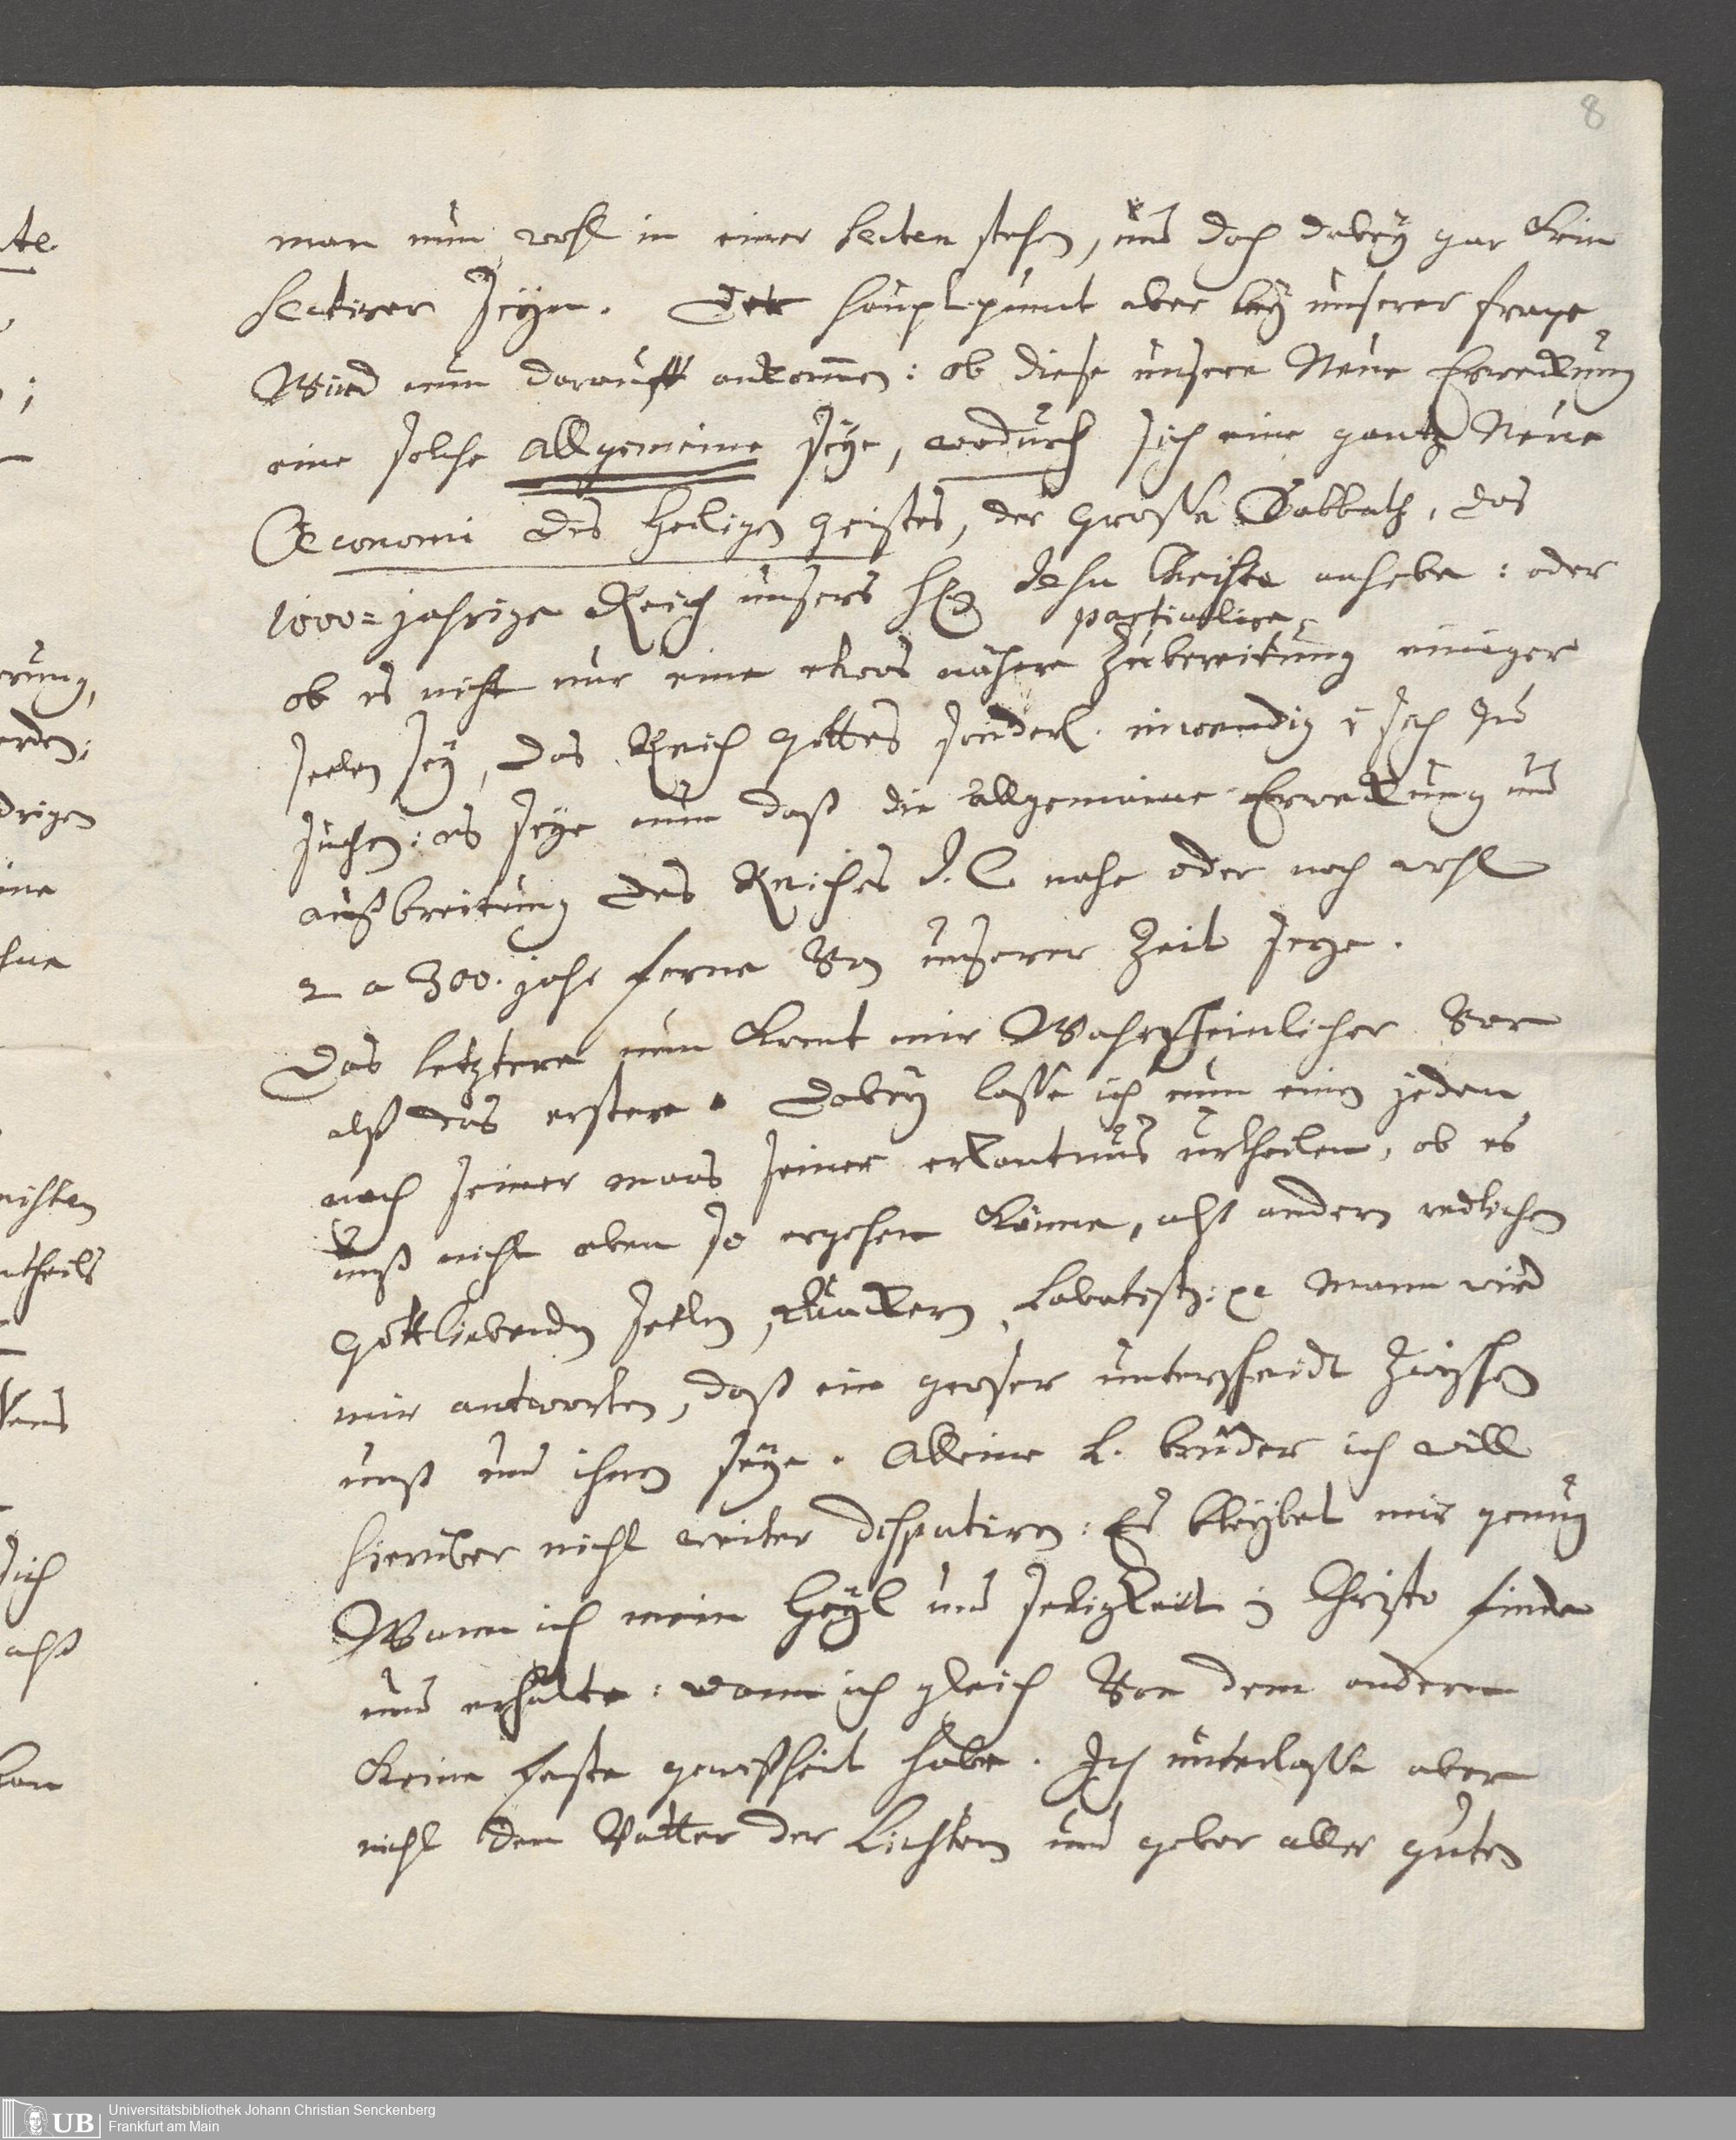 8
man nun wohl in einer Secten stehen, und doch dabey gar kein
Sectirer seyn. Der hauptpunct aber bey unserer frage
Wird nun darauff ankommen: ob diese unsere Neue Erweckung
eine solche allgemeine seye, wodurch sich eine gantz Neue
Œconomi des Heiligen geistes, der grosse Sabbath, das
1000=jahrige Reich unsers Hen Jesu Christe anhebe: oder
particulire
ob es nicht nur eine etwas nähere Zubereitung einiger
seelen sey, das Reich gottes sonderl. inwendig i sich zu
suchen: es seye nun daß die allgemeine Erweckung und
außbreitung des Reiches J. C. nahe oder noch wohl
2 a 300. jahr ferne Von unserer Zeit seye.
Das letztere nun komt mir Wahrscheinlicher Vor
alß das erstere. Dabey lasse ich nun einen jeden
nach seiner maas seiner erkantnus urtheilen, ob es
unß nicht eben so ergehen könne, alß andern redlichen
gottliebenden seelen, Quackern, Labatisten: &c Mann wird
mir antworten, daß ein groser unterscheidt zwischen
unß und ihnen seye. Alleine L. bruder ich will
hierüber nicht weiter disputiren: Es bleybet mir genug
Wann ich mein Heyl und seligkeit in Christo finde
und erhalte: wann ich gleich Von dem andern
keine feste gewißheit habe. Ich unterlasse aber
nicht dem Vatter der Lichtern und geber aller guten
te
rung,
erden;
drigen
ine
hne
theils
sich
alß
UB Universitätsbibliothek Johann Christian Senckenberg
Frankfurt am Main